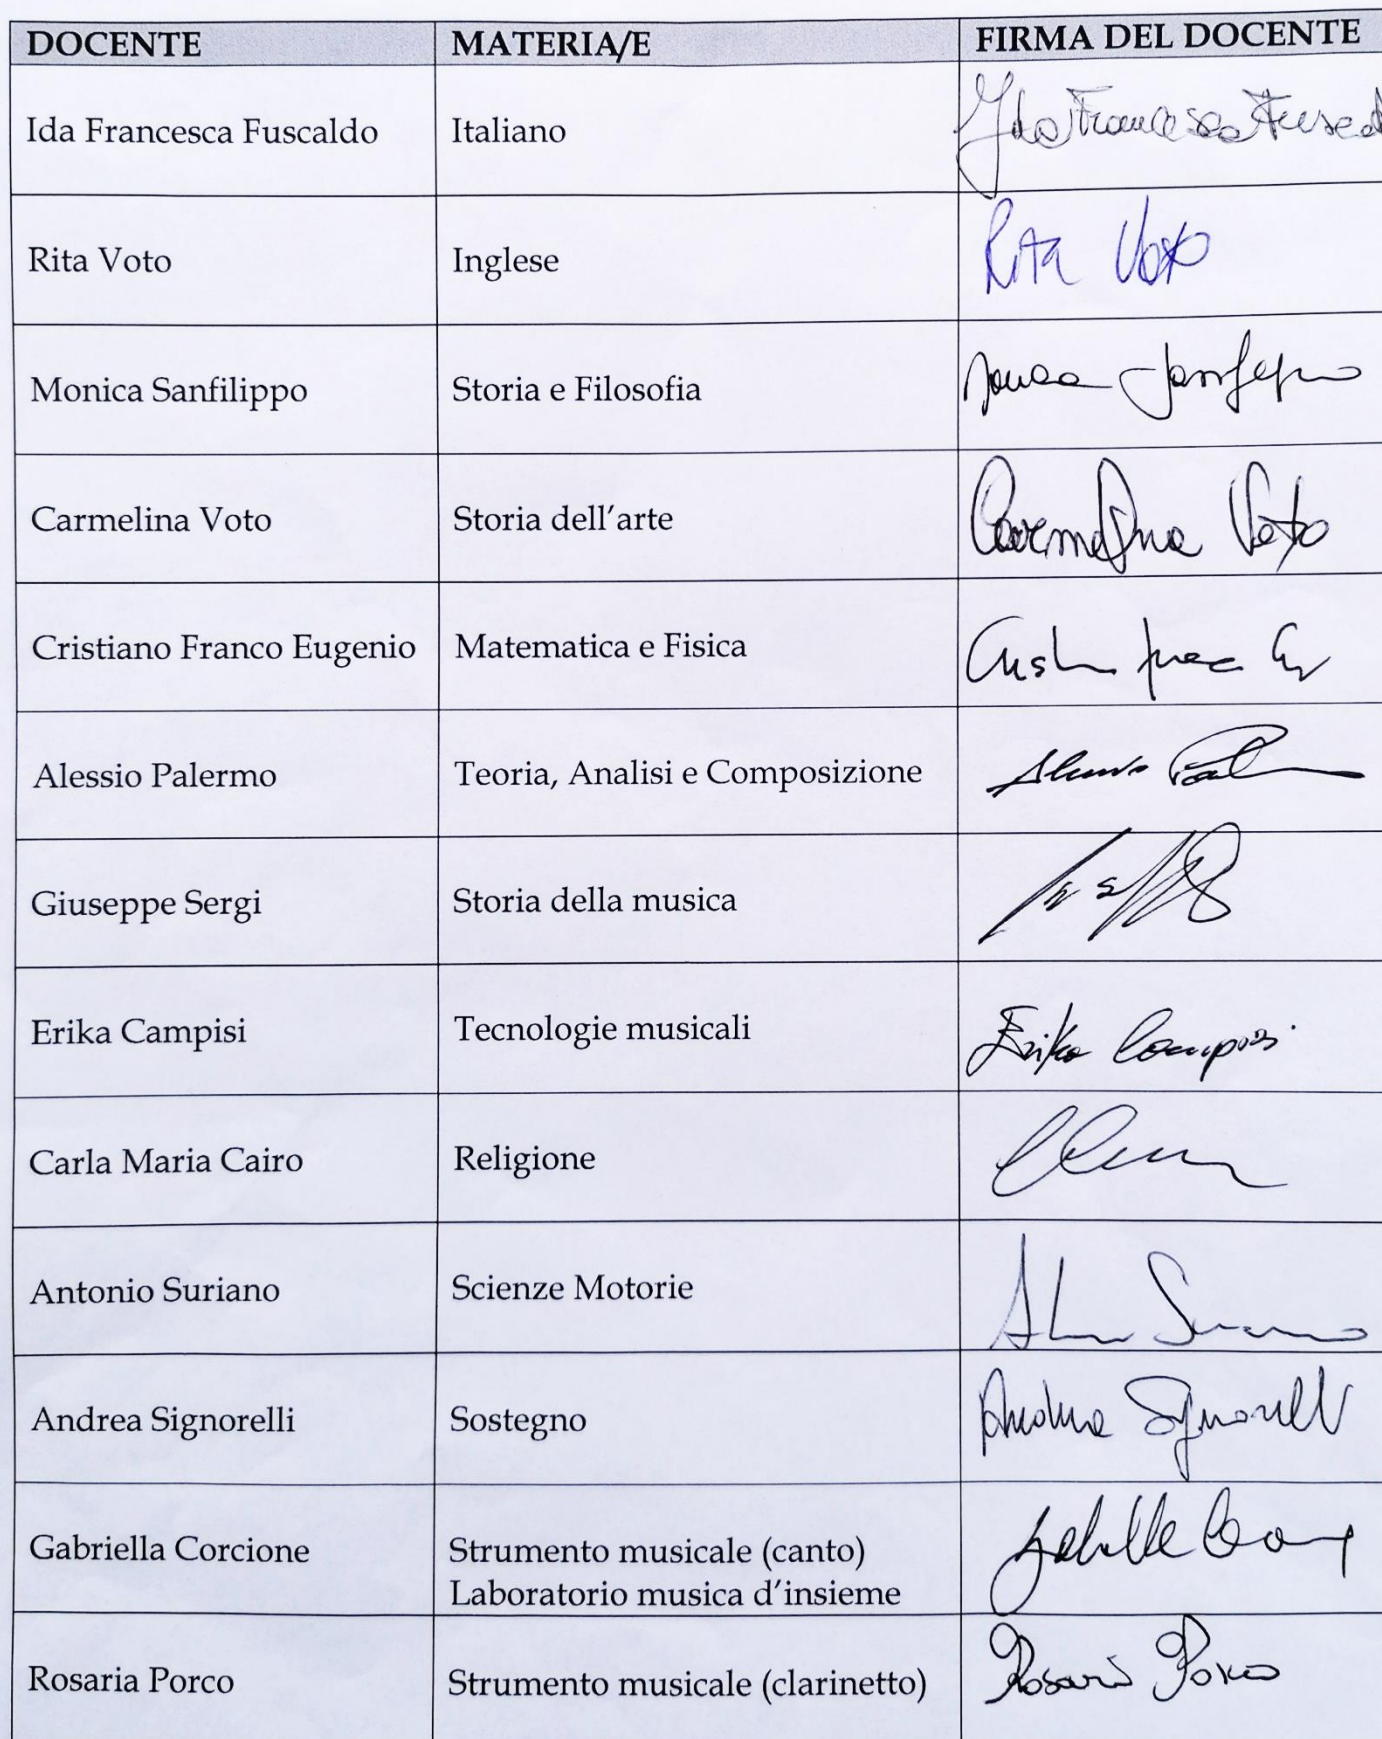 DOCENTE MATERIA/E FIRMA DEL DOCENTE
Ida Francesca Fuscaldo Italiano Ida Francesca
Rita Voto Inglese Rita Voto
Monica Sanfilippo Storia e Filosofia
Carmelina Voto Storia dell'arte Carmelina Voto
Cristiano Franco Eugenio Matematica e Fisica
Alessio Palermo Teoria, Analisi e Composizione
Giuseppe Sergi Storia della musica
Erika Campisi Tecnologie musicali Erika Campisi
Carla Maria Cairo Religione
Antonio Suriano Scienze Motorie
Andrea Signorelli Sostegno Andrea Signorelli
Gabriella Corcione Strumento musicale (canto)
Laboratorio musica d'insieme
Rosaria Porco Strumento musicale (clarinetto) Rosaria Porco